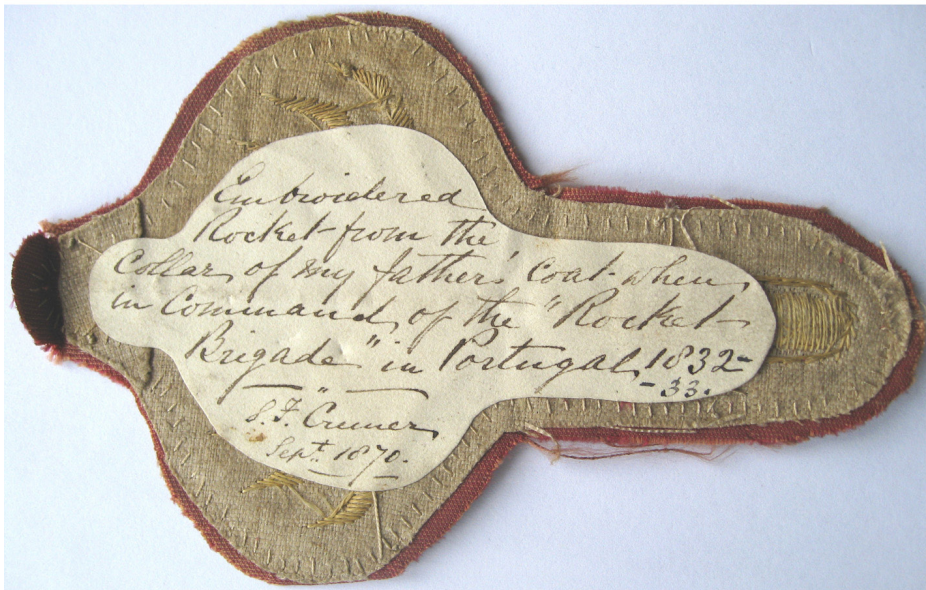 Embroidered
Rocket from the
Collar of my father's Coat when
in Command of the "Rocket
Brigade" in Portugal 1832-
-33.
S. F. Cremer
Septr. 1870.